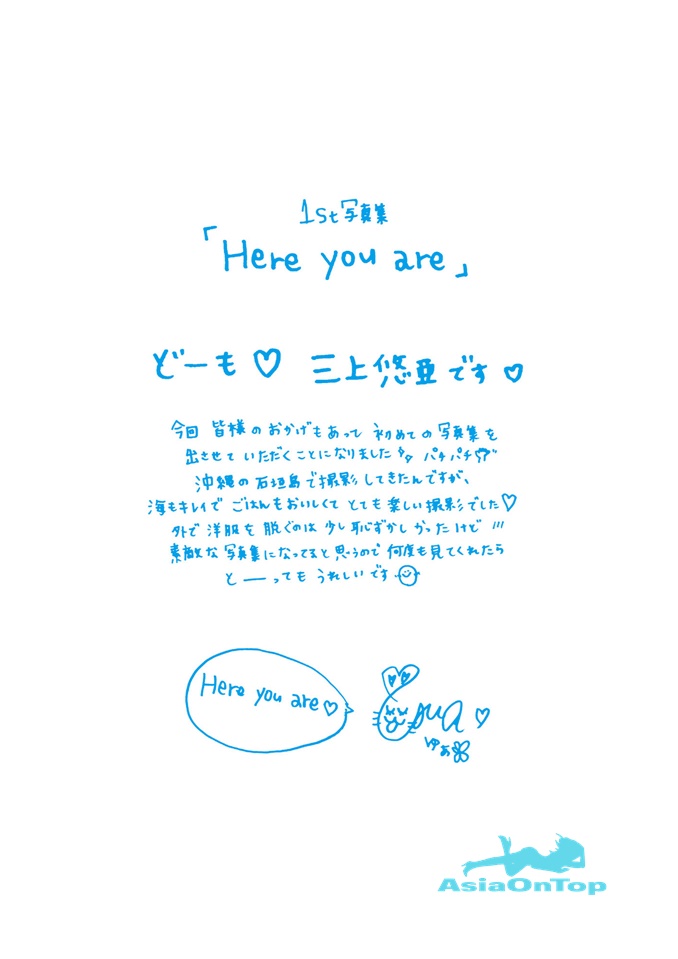 1st写真集
「Here you are」
どーも♡ 三上悠亜です♡
今回 皆様のおかげもあって 初めての写真集を
出させていただくことになりました パチパチ
沖縄の石垣島で撮影してきたんですが、
海もキレイで ごはんもおいしくて とても楽しい撮影でした♡
外で洋服を脱ぐのは少し恥ずかしかったけど ///
素敵な写真集になってると思うので 何度も見てくれたら
と――っても うれしいです
Here you are♡
yua♡
ゆあ
AsiaOnTop